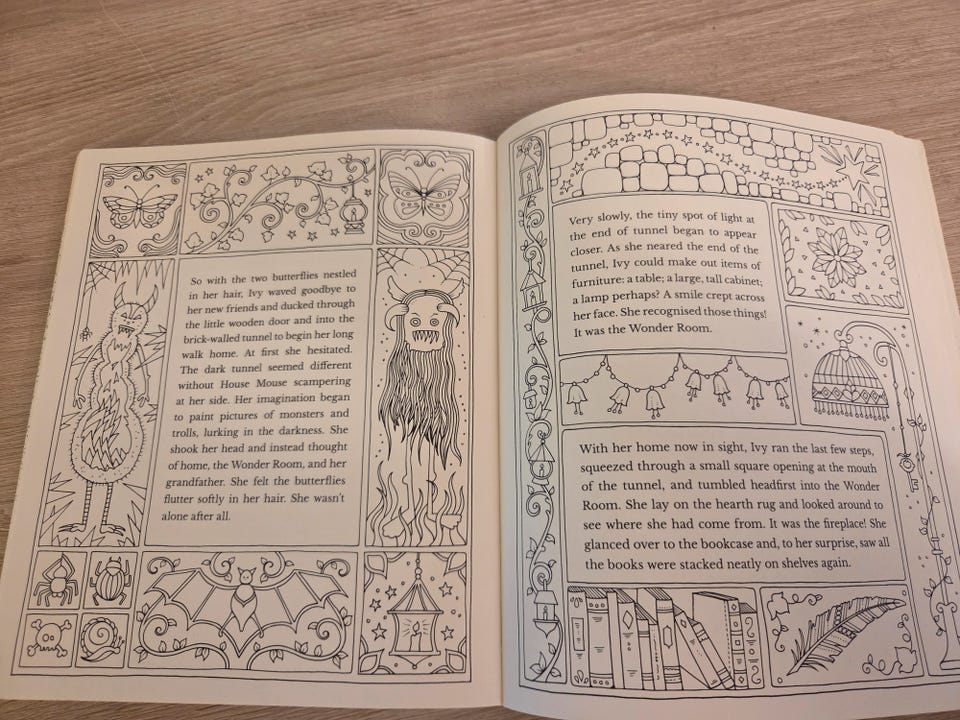 So with the two butterflies nestled
in her hair, Ivy waved goodbye to
her new friends and ducked through
the little wooden door and into the
brick-walled tunnel to begin her long
walk home. At first she hesitated.
The dark tunnel seemed different
without House Mouse scampering
at her side. Her imagination began
to paint pictures of monsters and
trolls, lurking in the darkness. She
shook her head and instead thought
of home, the Wonder Room, and her
grandfather. She felt the butterflies
flutter softly in her hair. She wasn't
alone after all.
Very slowly, the tiny spot of light at
the end of tunnel began to appear
closer. As she neared the end of the
tunnel, Ivy could make out items of
furniture: a table; a large, tall cabinet;
a lamp perhaps? A smile crept across
her face. She recognised those things!
It was the Wonder Room.
With her home now in sight, Ivy ran the last few steps,
squeezed through a small square opening at the mouth
of the tunnel, and tumbled headfirst into the Wonder
Room. She lay on the hearth rug and looked around to
see where she had come from. It was the fireplace! She
glanced over to the bookcase and, to her surprise, saw all
the books were stacked neatly on shelves again.